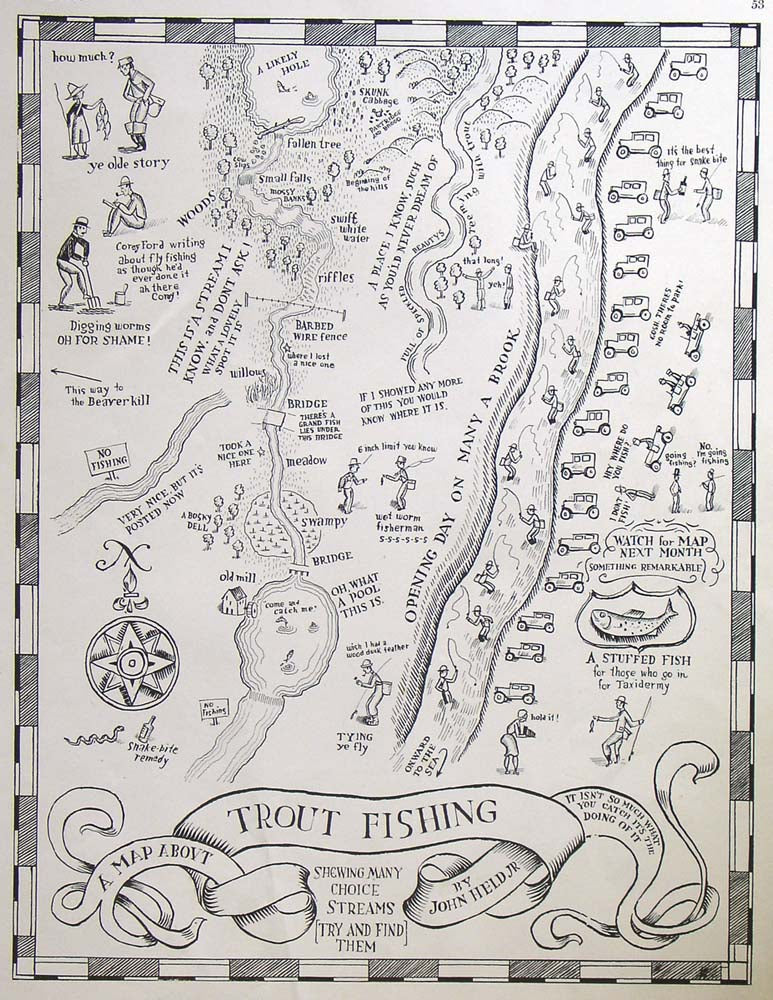 53
how much?
ye olde story
Corey Ford writing
about fly fishing
as though he'd
ever done it
ah there
Corey!
Digging worms
OH FOR SHAME!
This way to
the Beaverkill
NO
FISHING
VERY NICE BUT IT'S
POSTED NOW
A LIKELY
HOLE
fallen tree
small falls
MOSSY
BANKS
WOODS
swift
white
water
riffles
THIS IS A STREAM I
KNOW, and DON'T ASK!
WHAT A LOVELY
SPOT IT IS
BARBED
WIRE fence
where I lost
a nice one
willows
BRIDGE
THERE'S A
GRAND FISH
LIES UNDER
THIS BRIDGE
TOOK A
NICE ONE
HERE
meadow
A BOSKY
DELL
swampy
BRIDGE
old mill
come and
catch me!
OH, WHAT
A POOL
THIS IS.
NO
Fishing
Snake-bite
remedy
SKUNK
Cabbage
Beginning of
the hills
A PLACE I KNOW, SUCH
AS YOU'D NEVER DREAM OF
FULL OF SPECKLED BEAUTYS
that long!
yeh!
IF I SHOWED ANY MORE
OF THIS YOU WOULD
KNOW WHERE IT IS.
6 inch limit you know
wet worm
fisherman
S-S-S-S-S-S
wish I had a
wood duck feather
TYING
ye fly
OPENING DAY ON MANY A BROOK
ONWARD
TO THE
SEA
It's the best
thing for snake bite
GOSH THERE'S
NO ROOM TO PARK!
HEY WHERE DO
YOU FISH?
I DON'T
FISH!
going
fishing?
No..
I'm going
fishing
WATCH for MAP
NEXT MONTH
SOMETHING REMARKABLE
A STUFFED FISH
for those who go in
for Taxidermy
hold it!
TROUT FISHING
A MAP ABOVT
SHEWING MANY
CHOICE
STREAMS
[TRY AND FIND]
THEM
BY
JOHN HELD JR
IT ISN'T SO MUCH WHAT
YOU CATCH IT'S THE
DOING OF IT